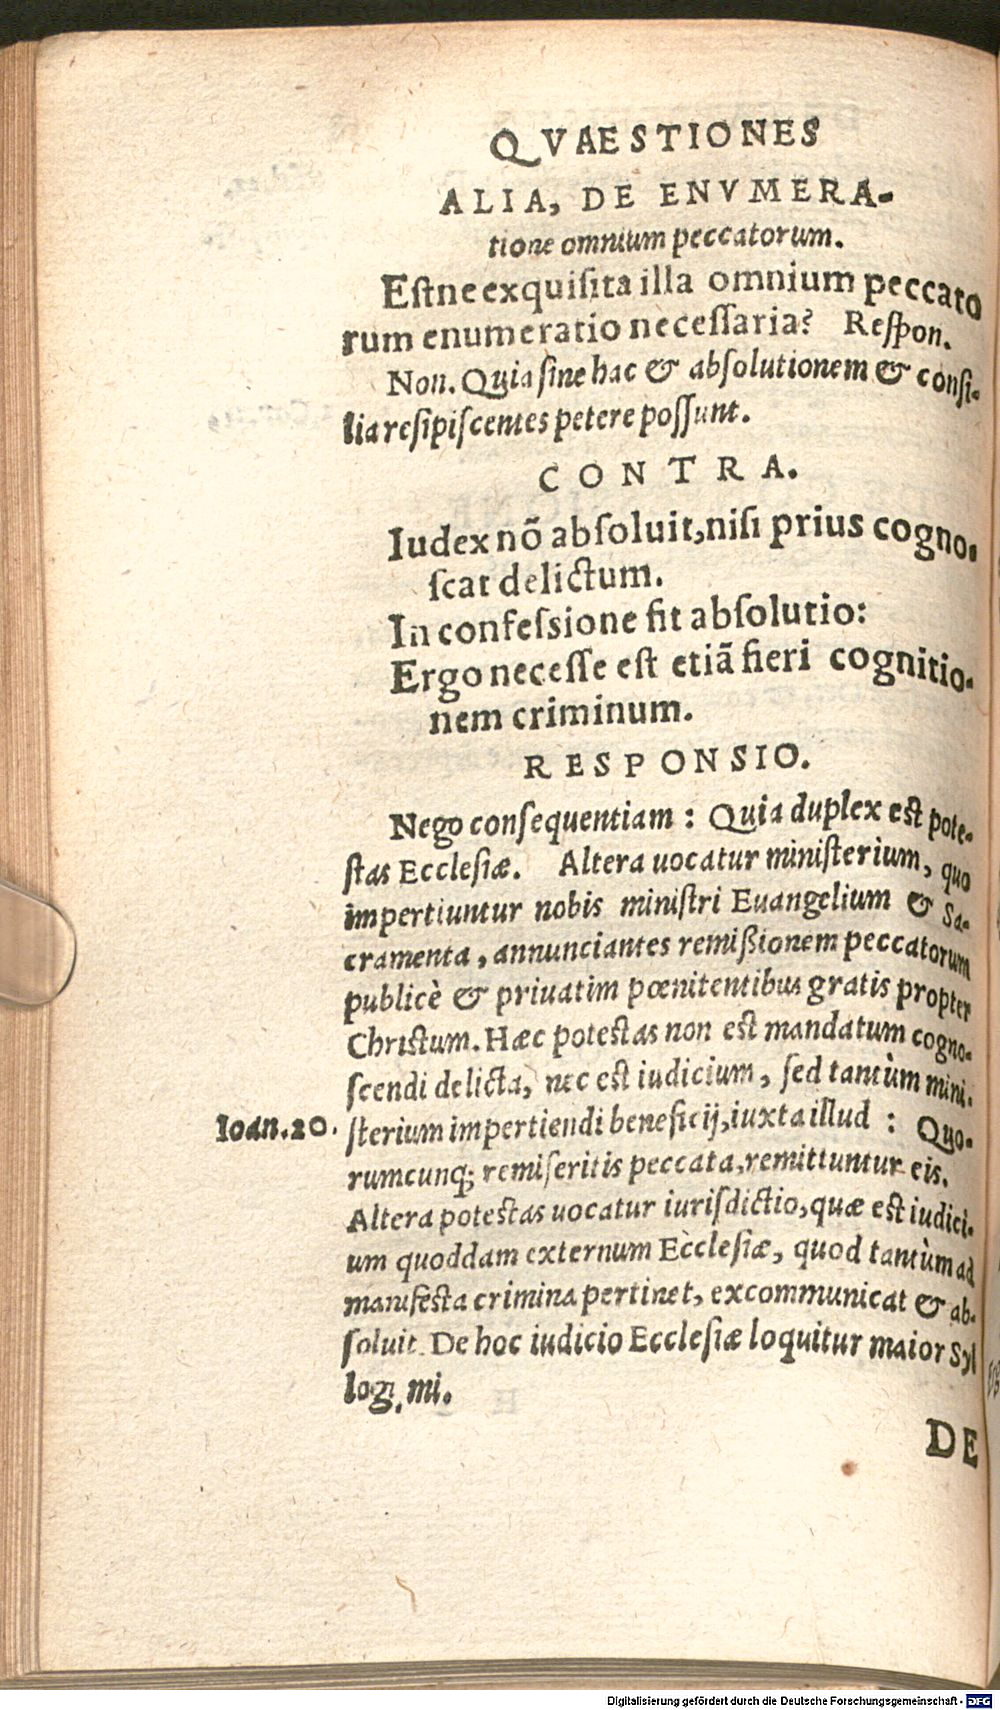 QVAESTIONES
ALIA, DE ENVMERA-
tione omnium peccatorum.
Estne exquisita illa omnium peccato
rum enumeratio necessaria? Respon.
Non. Quia sine hac & absolutionem & consi-
lia resipiscentes petere possunt.
CONTRA.
Iudex nõ absoluit, nisi prius cogno-
scat delictum.
In confessione fit absolutio:
Ergo necesse est etiã fieri cognitio-
nem criminum.
RESPONSIO.
Nego consequentiam: Quia duplex est pote-
stas Ecclesiæ. Altera uocatur ministerium, quo
impertiuntur nobis ministri Euangelium & Sa-
cramenta, annunciantes remißionem peccatorum
publicè & priuatim pœnitentibus gratis propter
Christum. Hæc potestas non est mandatum cogno-
scendi delicta, nec est iudicium, sed tantùm mini-
Ioan.20. sterium impertiendi beneficij, iuxta illud: Quo-
rumcunq; remiseritis peccata, remittuntur eis.
Altera potestas uocatur iurisdictio, quæ est iudici-
um quoddam externum Ecclesiæ, quod tantùm ad
manifesta crimina pertinet, excommunicat & ab-
soluit. De hoc iudicio Ecclesiæ loquitur maior Syl
logismi.
DE
Digitalisierung gefördert durch die Deutsche Forschungsgemeinschaft - DFG